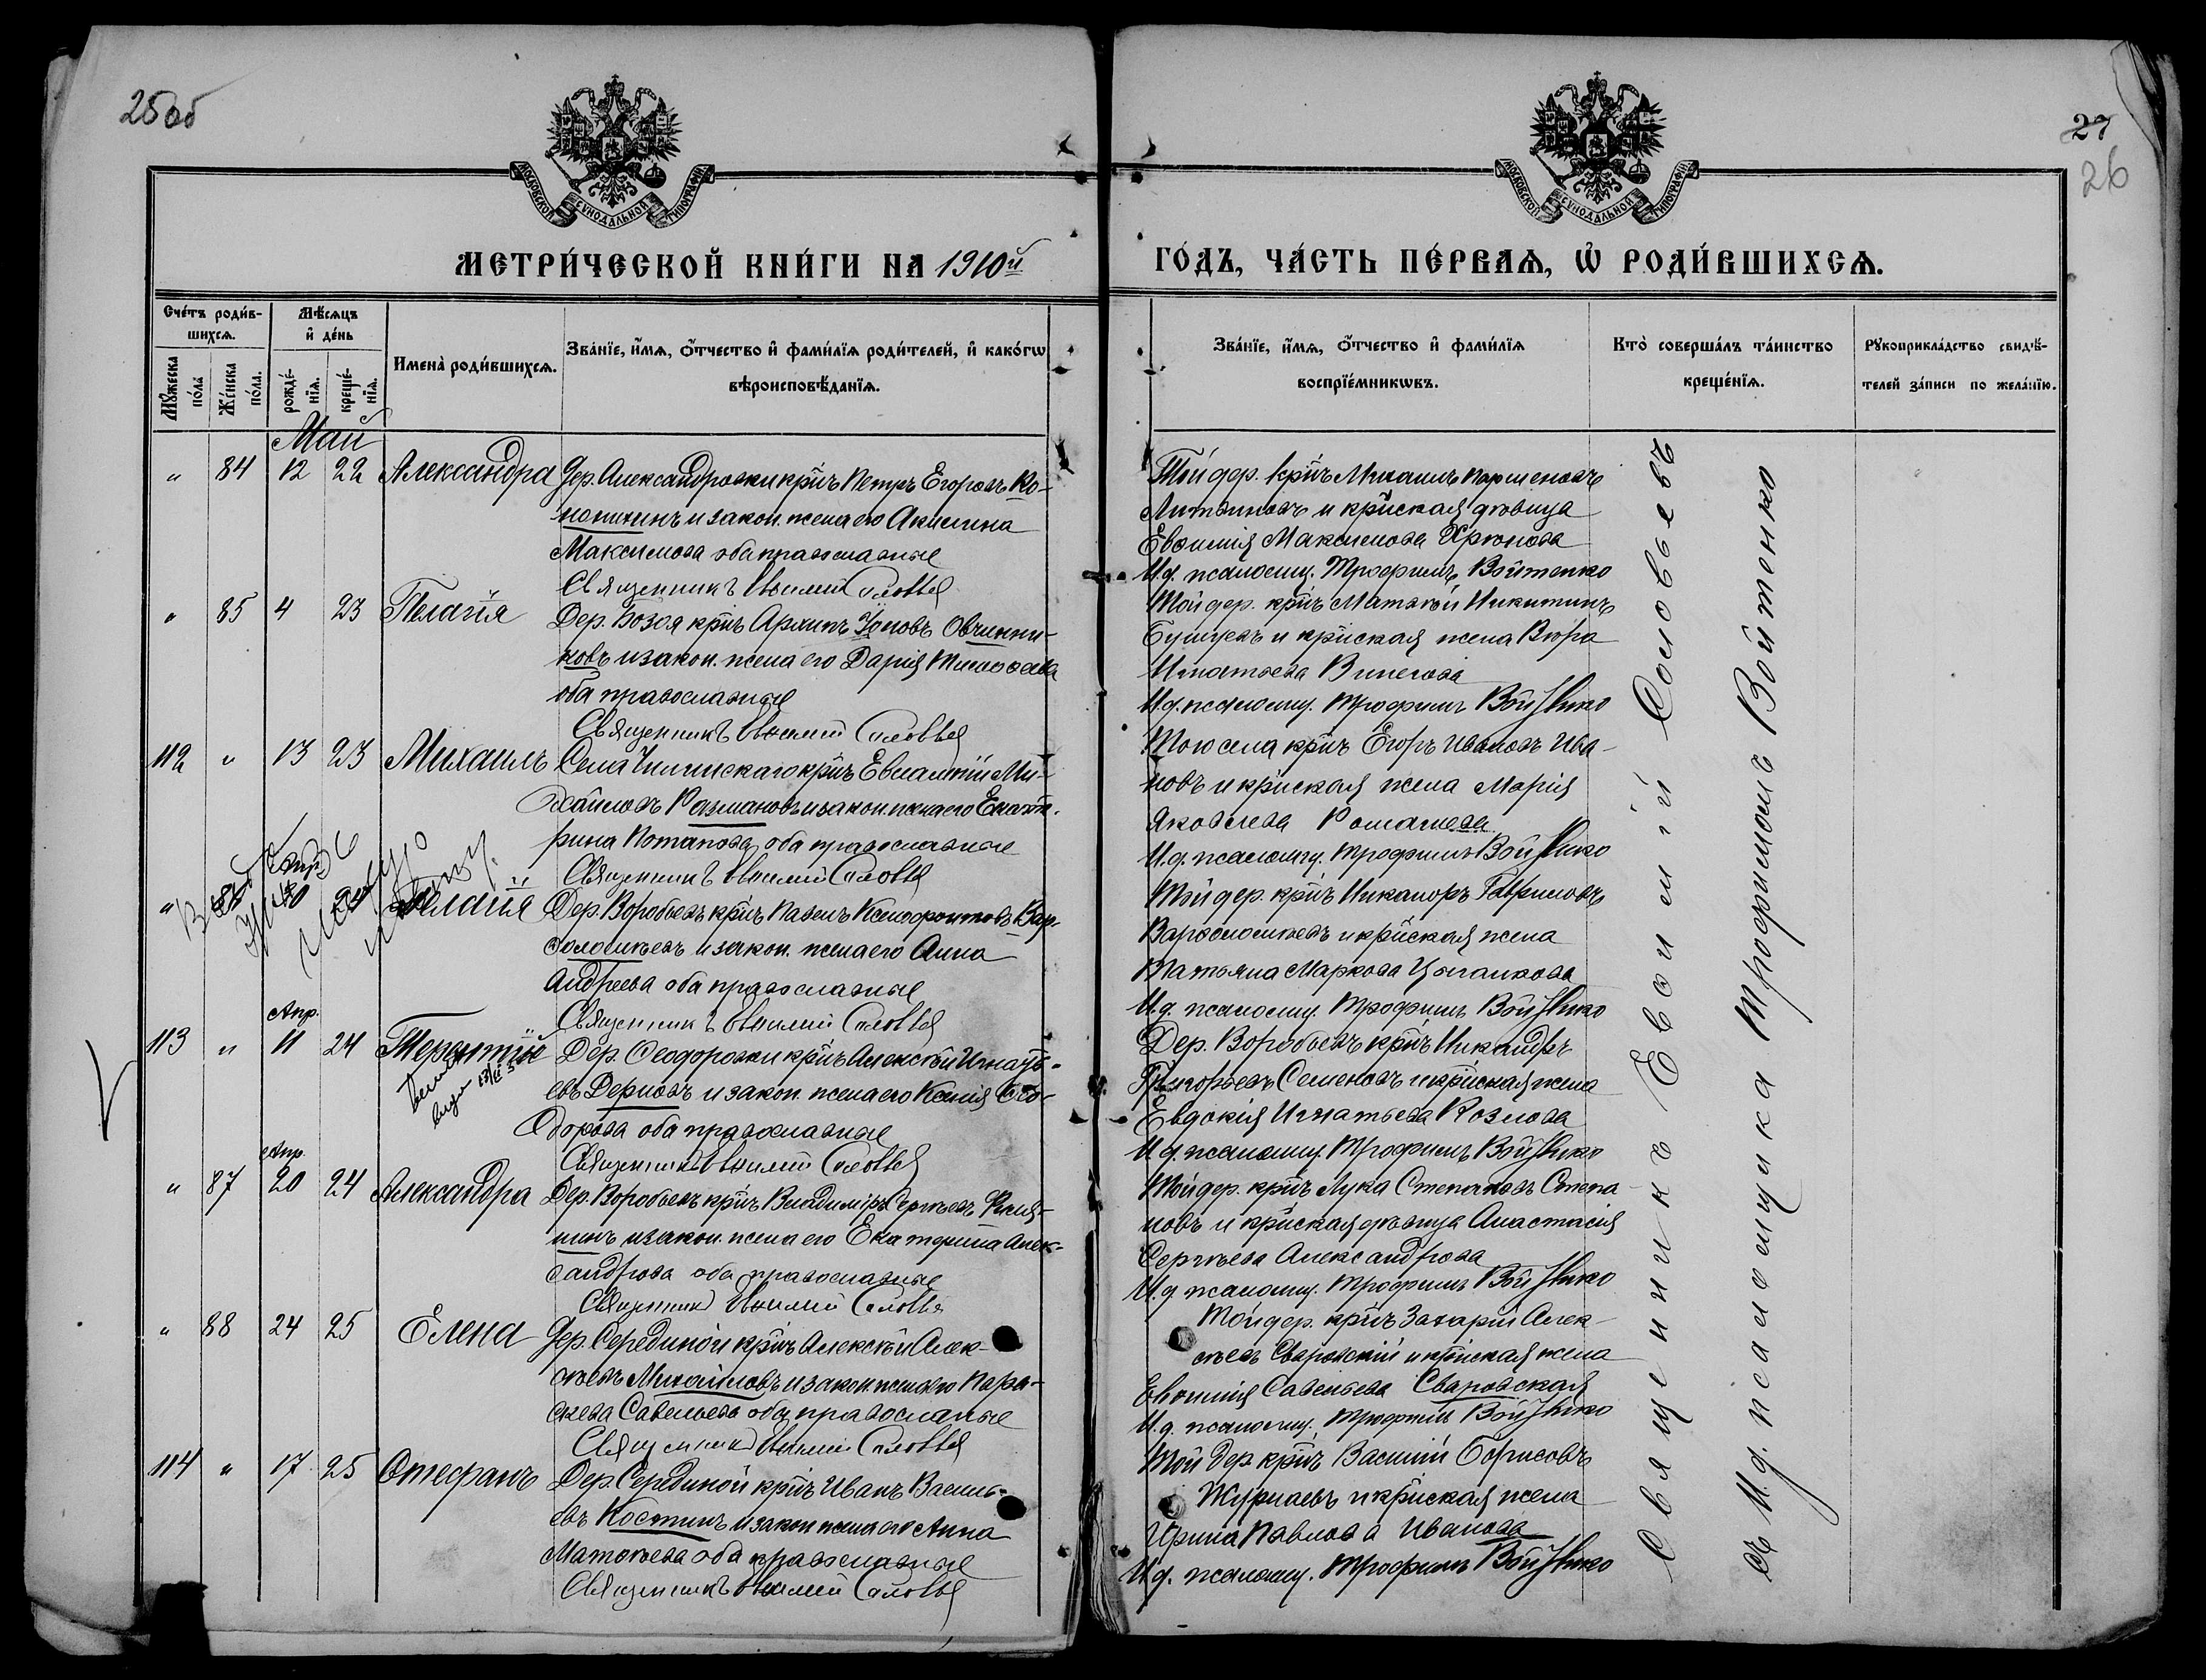 25об
27
26
МОСКОВСКОЙ СѴНОДАЛЬНОЙ ТИПОГРАФІИ
МОСКОВСКОЙ СѴНОДАЛЬНОЙ ТИПОГРАФІИ
МЕТРИ́ЧЕСКОЙ КНИ́ГИ НА 1910й
ГО́ДЪ, ЧА́СТЬ ПЕ́РВАЯ, Ѡ РОДИ́ВШИХСЯ.
Сче́тъ роди́в-
шихся.
Мѣ́сяцъ
и де́нь
Мꙋ́жеска
по́ла
Же́нска
по́ла.
рожде́-
нїя.
креще́-
нїя.
Имена̀ роди́вшихся.
Зва́нїе, и́мя, о́тчество и фами́лїя роди́телей, и како́гѡ
вѣроисповѣ́данїя.
Зва́нїе, и́мя, о́тчество и фами́лїя
воспрїе́мникѡвъ.
Кто̀ соверша́лъ та́инство
креще́нїя.
Рꙋкоприкла́дство свидѣ́-
телей за́писи по жела́нїю.
Май
" 84 12 22 Александра Дер. Александровки кр҃нъ Петръ Егоровъ Ко-
и закон. жена его Акилина
Максимова оба православные
Священникъ Евѳимій Соловьев
Той дер. кр҃нъ Михаилъ Парменовъ
Литвиновъ и кр҃нская дѣвица
Евѳимія Максимова Хрюкова
И.д. псаломщ. Трофимъ Войтенко
" 85 4 23 Пелагія Дер. Возоя кр҃нъ Архипъ Овчинни-
ковъ и закон. жена его Дарія
оба православные
Священникъ Евѳимій Соловьев
Той дер. кр҃нъ Матвѣй Никитинъ
и кр҃нская жена Вѣра
Игнатьева
И.д. псаломщ. Трофимъ Войтенко
112 " 13 23 Михаилъ Села кр҃нъ Евлампій Ми-
хайловъ и закон. жена его Екате-
рина Потапова оба православные
Священникъ Евѳимій Соловьев
Того села кр҃нъ Егоръ Ивановъ Ива-
новъ и кр҃нская жена Марія
Яковлева
И.д. псаломщ. Трофимъ Войтенко
" 24 Пелагія Дер. Воробьевъ кр҃нъ Павелъ Ксенофонтовъ Вар-
ѳоломѣевъ и закон. жена его Анна
Андреева оба православные
Священникъ Евѳимій Соловьев
Той дер. кр҃нъ Никаноръ Гавриловъ
Варѳоломѣевъ и кр҃нская жена
Татьяна Маркова Цыганкова
И.д. псаломщ. Трофимъ Войтенко
Апр.
113 " 11 24 Терентій Дер. Ѳеодоровки кр҃нъ Алексѣй Игнать-
евъ Дерновъ и закон. жена его Ксенія Ѳео-
дорова оба православные
Священникъ Евѳимій Соловьев
Дер. Воробьевъ кр҃нъ Никандръ
Григорьевъ Семеновъ и кр҃нская жена
Евдокія Игнатьева Козлова
И.д. псаломщ. Трофимъ Войтенко
Апр.
" 87 20 24 Александра Дер. Воробьевъ кр҃нъ Владиміръ Сергѣевъ
и закон. жена его Екатерина Алек-
сандрова оба православные
Священникъ Евѳимій Соловьев
Той дер. кр҃нъ Лука Степановъ Степа-
новъ и кр҃нская дѣвица Анастасія
Сергѣева Александрова
И.д. псаломщ. Трофимъ Войтенко
" 88 24 25 Елена Дер. Серединой кр҃нъ Алексѣй Алек-
сѣевъ Михайловъ и закон. жена его Пара-
скева Савельева оба православные
Священникъ Евѳимій Соловьев
Той дер. кр҃нъ Захарій Алек-
сѣевъ Сваровскій и кр҃нская жена
Евѳимія Савельева Сваровская
И.д. псаломщ. Трофимъ Войтенко
114 " 17 25 Стефанъ Дер. Серединой кр҃нъ Иванъ Василь-
евъ Костинъ и закон. жена его Анна
Матвѣева оба православные
Священникъ Евѳимій Соловьев
Той дер. кр҃нъ Василій Борисовъ
и кр҃нская жена
Ирина Павлова Иванова
И.д. псаломщ. Трофимъ Войтенко
Священникъ Евѳимій Соловьевъ
съ И.д. псаломщика Трофимомъ Войтенко